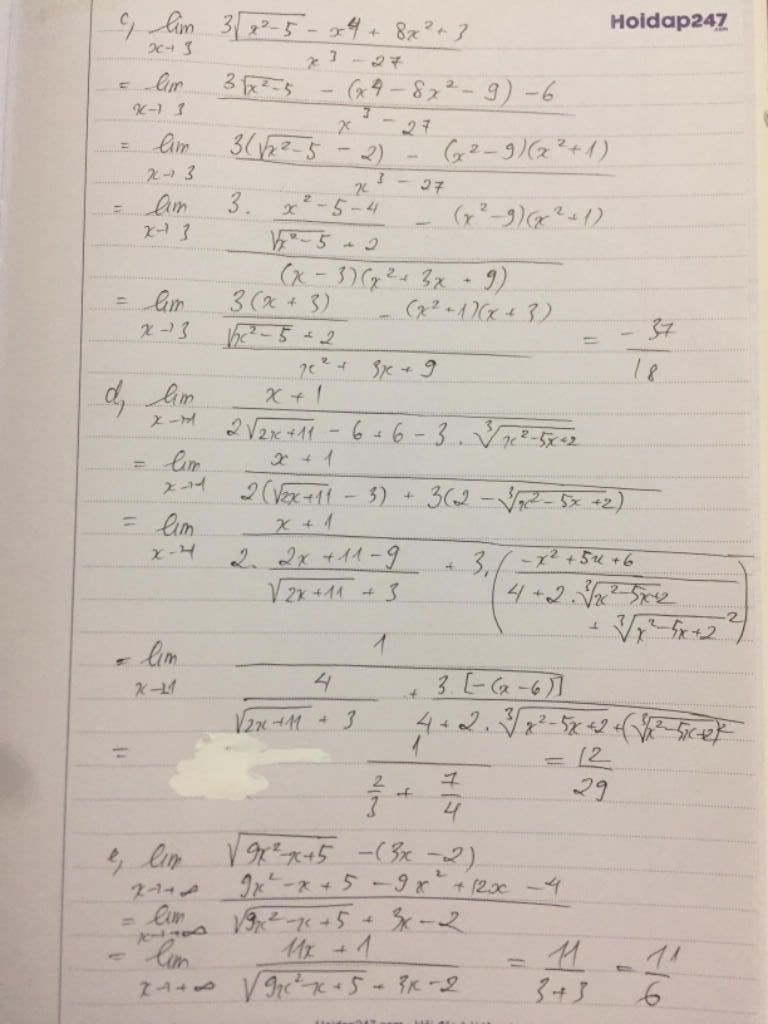 Hoidap247
.com
c, lim x→3 (3√(x²-5) - x⁴ + 8x² + 3) / (x³ - 27)
= lim x→3 (3√(x²-5) - (x⁴ - 8x² - 9) - 6) / (x³ - 27)
= lim x→3 (3(√(x²-5) - 2) - (x²-9)(x²+1)) / (x³ - 27)
= lim x→3 (3 . (x²-5-4) / (√(x²-5) + 2) - (x²-9)(x²+1)) / ((x-3)(x²+3x+9))
= lim x→3 (3(x+3) / (√(x²-5) + 2) - (x²+1)(x+3)) / (x² + 3x + 9) = -37/18
d, lim x→-1 (x+1) / (2√(2x+11) - 6 + 6 - 3 . ∛(x²-5x+2))
= lim x→-1 (x+1) / (2(√(2x+11) - 3) + 3(2 - ∛(x²-5x+2)))
= lim x→-1 (x+1) / (2 . (2x+11-9) / (√(2x+11) + 3) + 3 . ((-x²+5x+6) / (4 + 2 . ∛(x²-5x+2) + ∛(x²-5x+2)²)))
= lim x→-1 1 / (4 / (√(2x+11) + 3) + 3 . [-(x-6)] / (4 + 2 . ∛(x²-5x+2) + (∛(x²-5x+2))²))
= 1 / (2/3 + 7/4) = 12/29
e, lim x→+∞ √(9x²-x+5) - (3x-2)
= lim x→+∞ (9x²-x+5-9x²+12x-4) / (√(9x²-x+5) + 3x-2)
= lim x→+∞ (11x+1) / (√(9x²-x+5) + 3x-2) = 11/(3+3) = 11/6